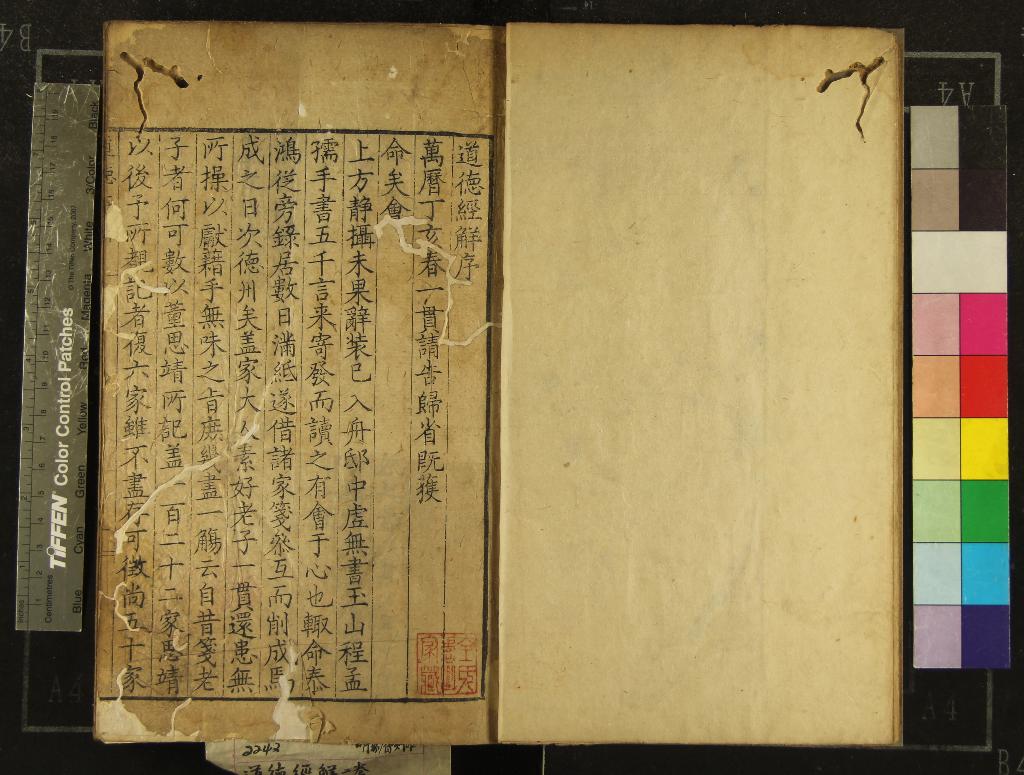 道德經解序
萬曆丁亥春一貫請告歸省既獲
命矣會
上方靜攝未果辭裝已入舟邸中虛無書玉山程孟
孺手書五千言来寄發而讀之有會于心也輙命泰
鴻從旁錄居數日滿紙遂借諸家箋叅互而削成焉
成之日次德州矣盖家大人素好老子一貫還患無
所操以獻藉手無味之旨庶幾盡一觴云自昔箋老
子者何可數以董思靖所記盖一百二十二家思靖
以後予所覩記者復六家雖不盡存可徴尚五十家
TIFFEN Color Control Patches
Blue Cyan Green Yellow Red Magenta White 3/Color Black
Inches
Centimetres
A4
A4
A4
B4
2242
道德經解二卷